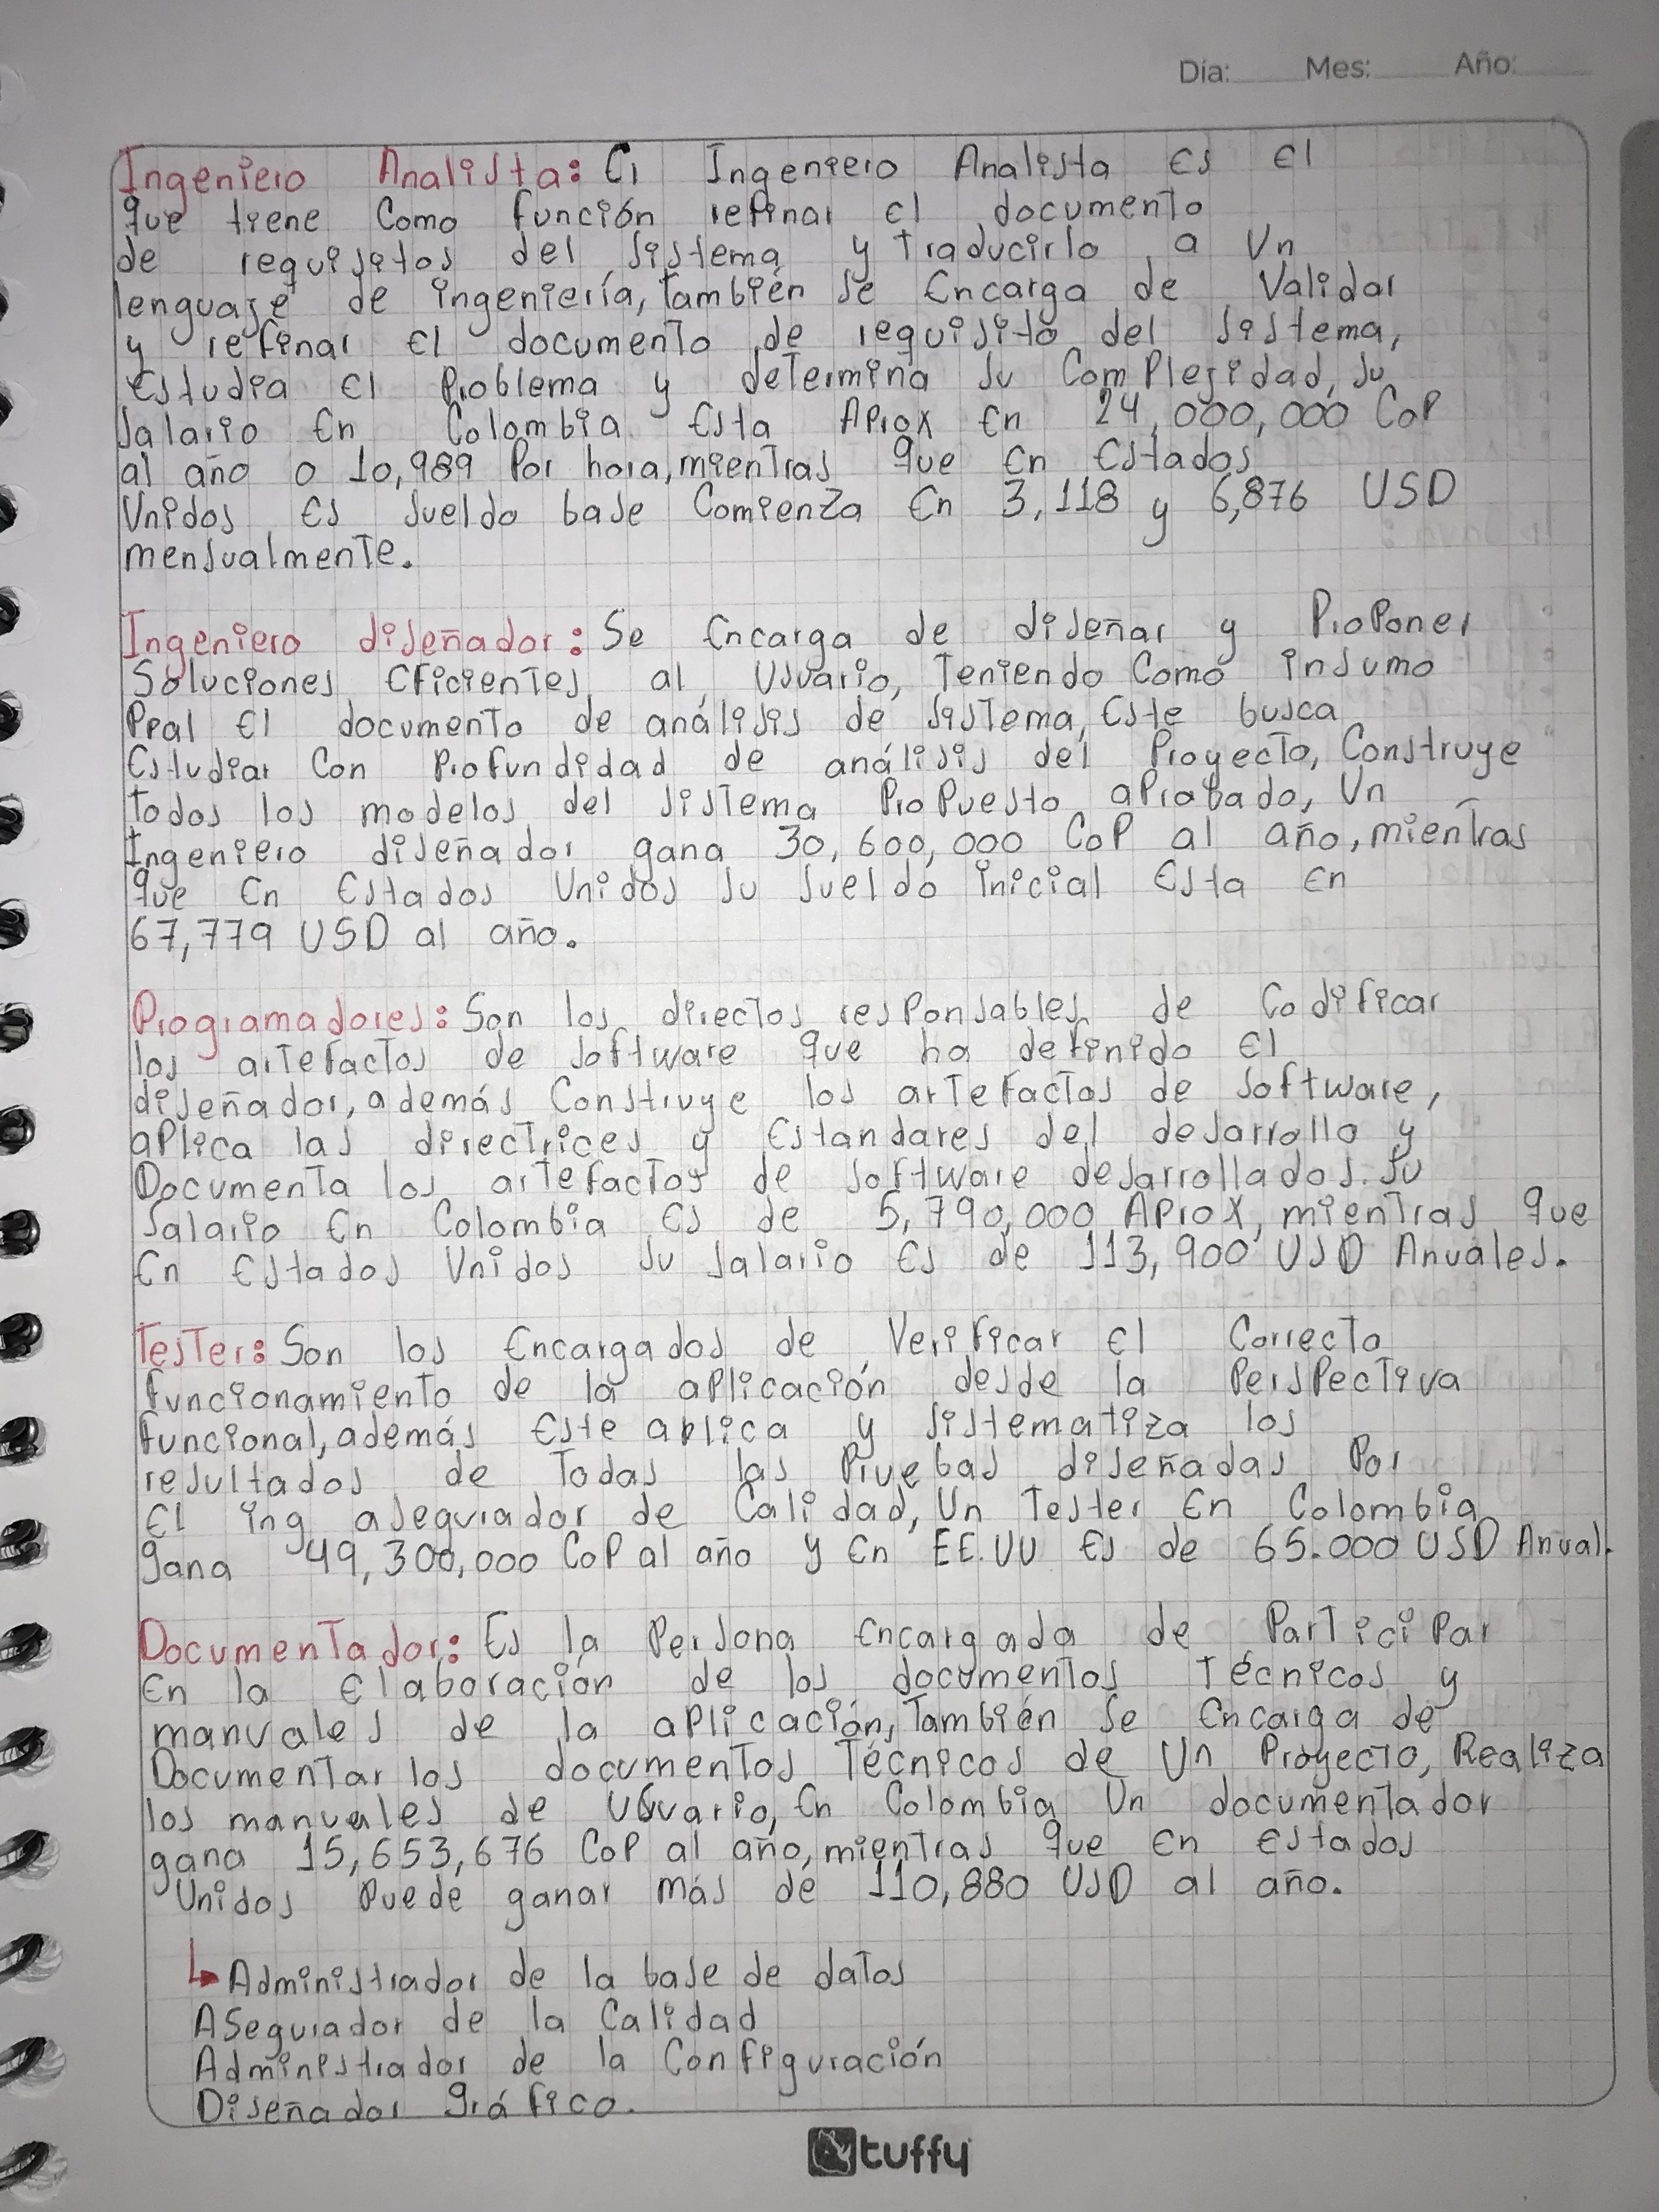 Día: Mes: Año:
Ingeniero Analista: El Ingeniero Analista es el
que tiene Como función refinar el documento
de requisitos del sistema y Traducirlo a Un
lenguaje de ingeniería, También se Encarga de Validar
y refinar El documento de requisito del sistema,
Estudia el Problema y determina su Complejidad, su
salario En Colombia Esta Aprox En 24,000,000 COP
al año o 10,989 Por hora, mientras que en Estados
Unidos Es sueldo base Comienza En 3,118 y 6,876 USD
mensualmente.
Ingeniero diseñador: Se Encarga de diseñar y Proponer
Soluciones Eficientes al Usuario, Teniendo Como insumo
Real El documento de análisis de sistema, Este busca
Estudiar Con Profundidad de análisis del Proyecto, Construye
Todos los modelos del sistema Propuesto aprobado, Un
Ingeniero diseñador gana 30,600,000 COP al año, mientras
que En Estados Unidos su sueldo inicial Esta en
67,779 USD al año.
Programadores: Son los directos responsables de Codificar
los artefactos de software que ha definido El
diseñador, además Construye los artefactos de software,
aplica las directrices y Estandares del desarrollo y
Documenta los artefactos de software desarrollados. Su
salario En Colombia Es de 5,790,000 Aprox, mientras que
En Estados Unidos su salario Es de 113,900 USD Anuales.
Tester: Son los Encargados de Verificar El Correcto
funcionamiento de la aplicación desde la Perspectiva
funcional, además Este aplica y sistematiza los
resultados de Todas las Pruebas diseñadas Por
El ing asegurador de Calidad, Un Tester En Colombia
gana 49,300,000 COP al año y En EE.UU Es de 65.000 USD Anual.
Documentador: Es la Persona Encargada de Participar
En la Elaboración de los documentos Técnicos y
manuales de la aplicación, También se Encarga de
Documentar los documentos Técnicos de Un Proyecto, Realiza
los manuales de Usuario, En Colombia Un documentador
gana 15,653,676 COP al año, mientras que en Estados
Unidos Puede ganar más de 110,880 USD al año.
Administrador de la base de datos
Asegurador de la Calidad
Administrador de la Configuración
Diseñador gráfico.
tuffy